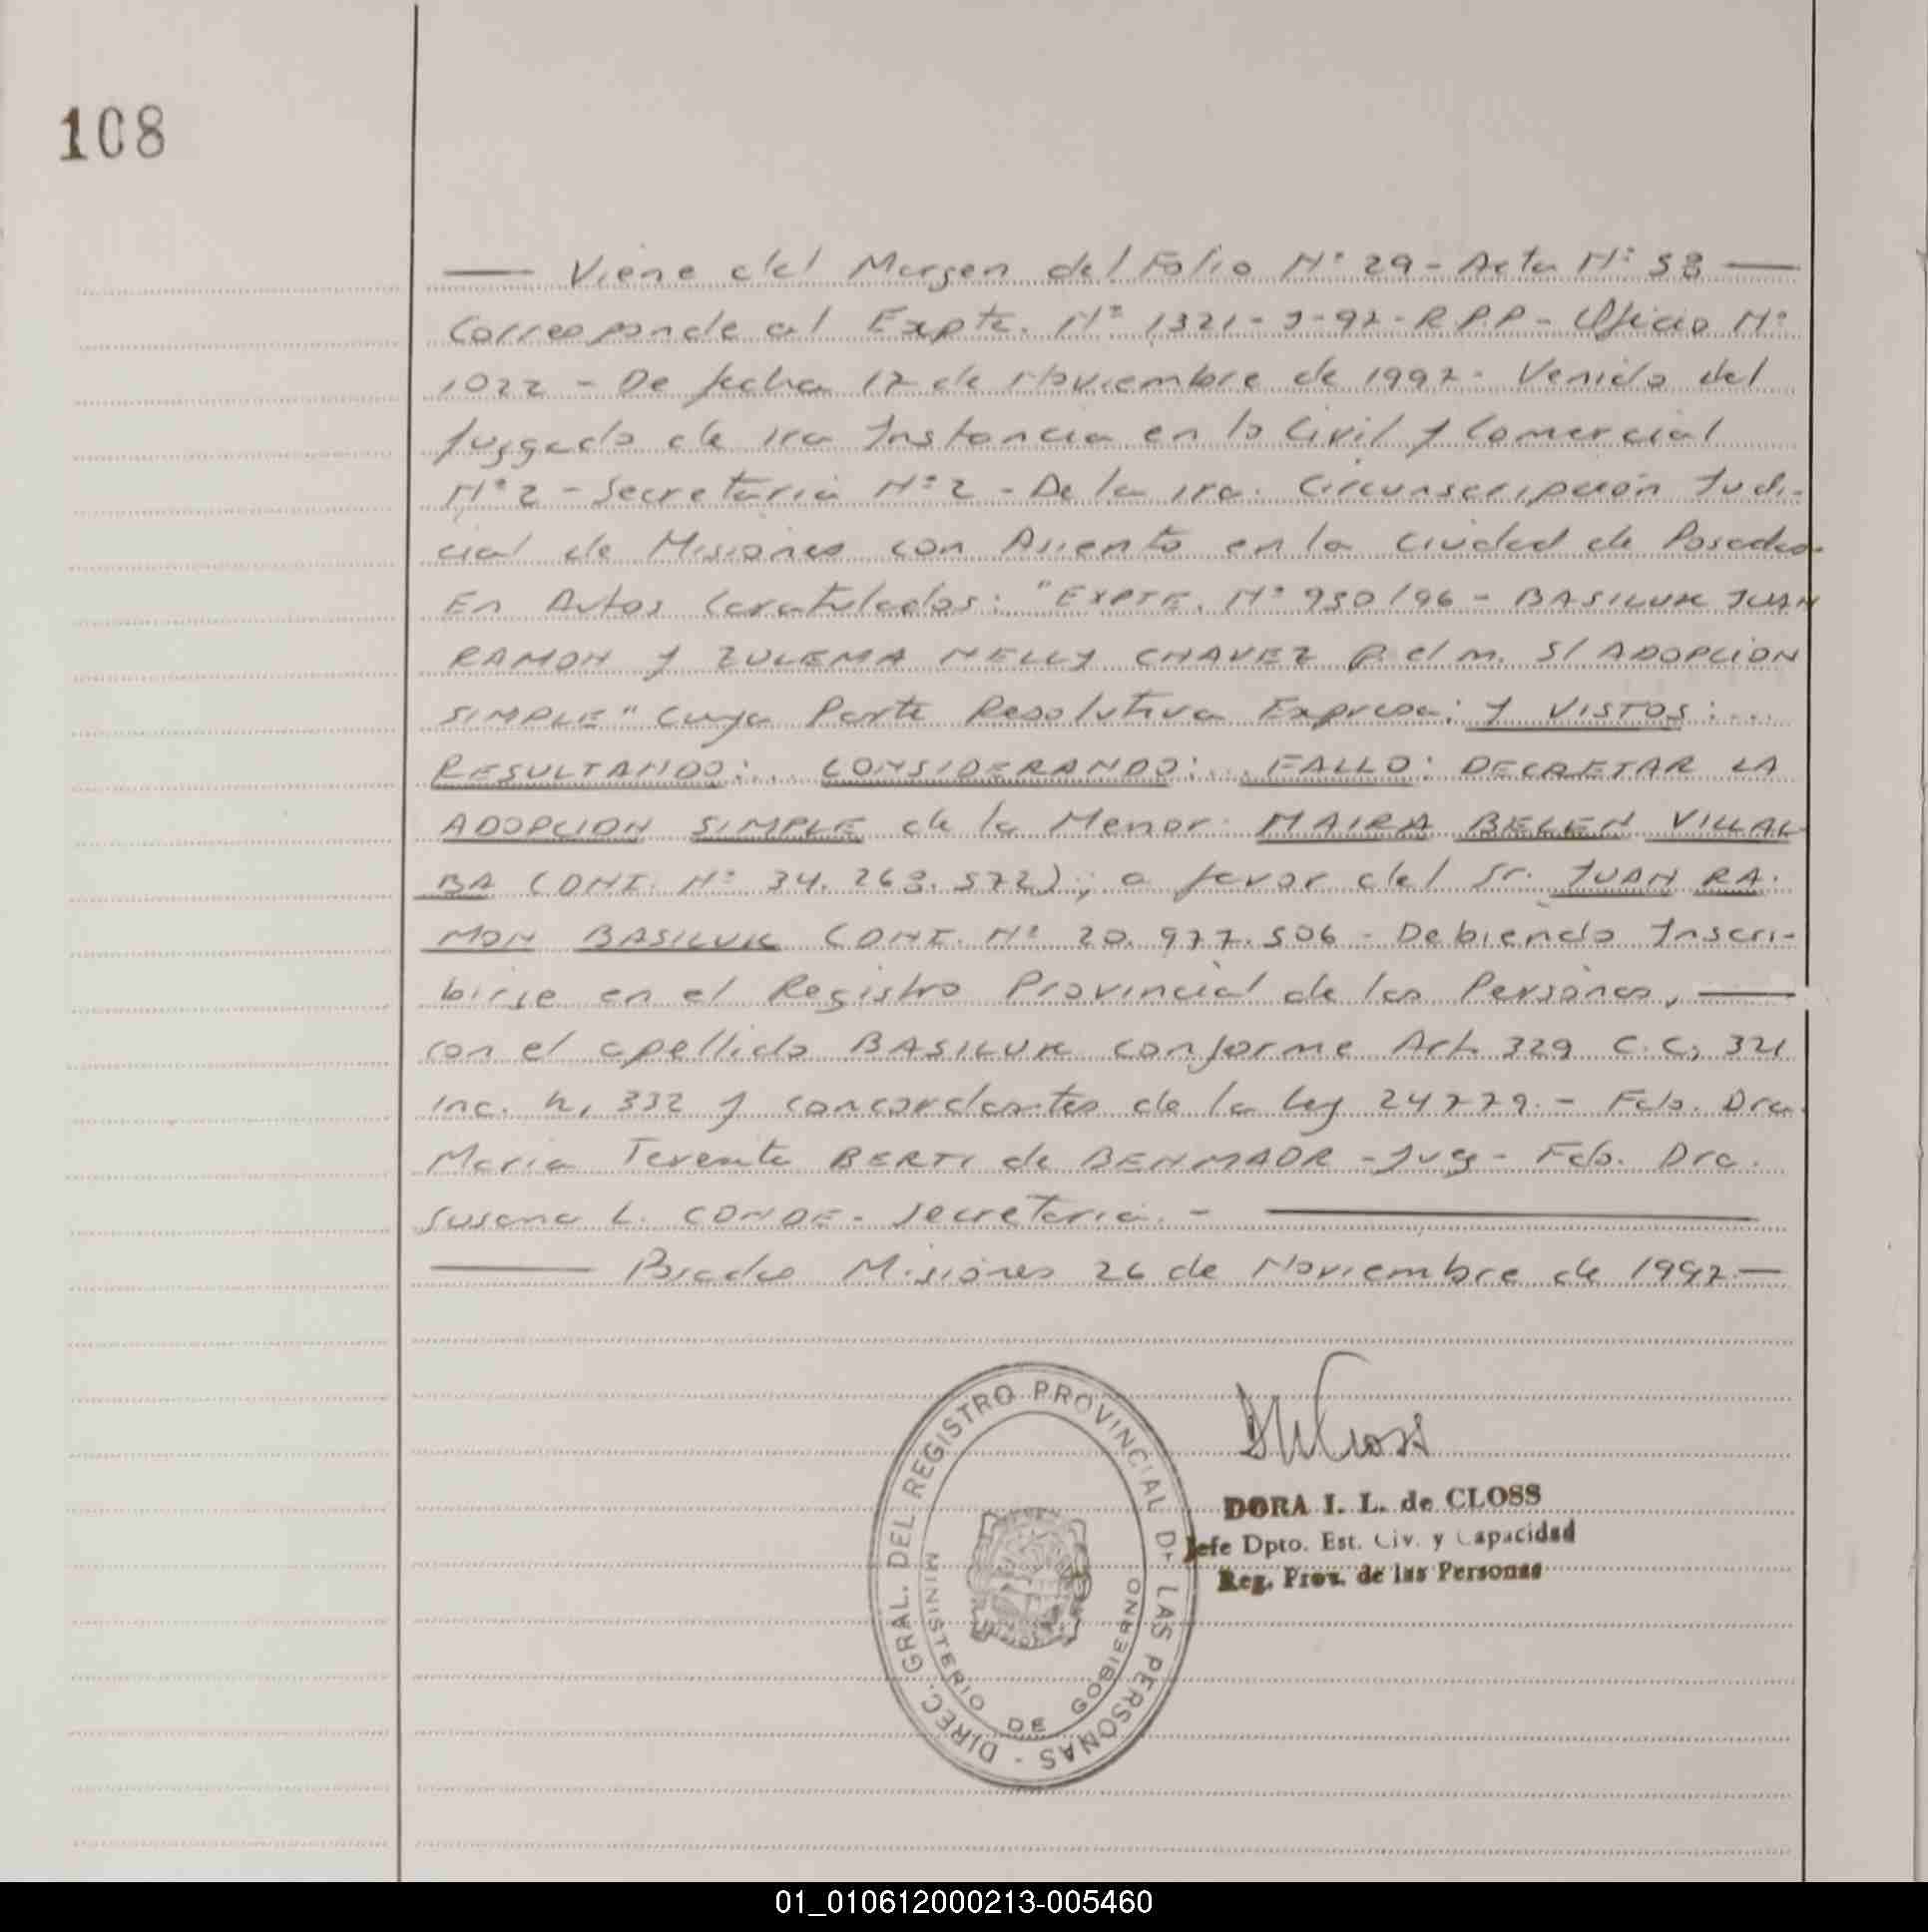 108
Viene del Margen del Folio Nº 29 - Acta Nº 58
Corresponde al Expte. Nº 1321-J-97-R.P.P - Oficio Nº
1022 - De fecha 17 de Noviembre de 1997- Venido del
Juzgado de 1ra Instancia en lo Civil y Comercial
Nº 2 - Secretaria Nº 2 - De la 1ra. Circunscripción Judi-
cial de Misiones con Asiento en la Ciudad de Posadas-
En Autos Caratulados: "EXPTE. Nº 950/96 - BASILUK JUAN
RAMON Y ZULEMA NELLY CHAVEZ p. el m. S/ ADOPCION
SIMPLE" Cuya Parte Resolutiva Expresa: Y VISTOS:...
RESULTANDO:... CONSIDERANDO:... FALLO: DECRETAR LA
ADOPCION SIMPLE de la Menor: MAIRA BELEN VILLAL-
BA (DNI. Nº 34.268.572); a favor del Sr. JUAN RA-
MON BASILUK (DNI. Nº 20.977.506 - Debiendo Inscri-
birse en el Registro Provincial de las Personas,
con el apellido BASILUK conforme Art. 329 C.C; 321
Inc. h, 332 y concordantes de la Ley 24779.- Fdo. Dra.
Maria BERTI de BENMAOR - Juez - Fdo. Dra.
Susana L. CONDE - Secretaria. -
Posadas Misiones 26 de Noviembre de 1997.-
DIREC. GRAL. DEL REGISTRO PROVINCIAL DE LAS PERSONAS -
MINISTERIO DE GOBIERNO
DORA I. L. de CLOSS
Jefe Dpto. Est. Civ. y Capacidad
Reg. Prov. de las Personas
01_010612000213-005460